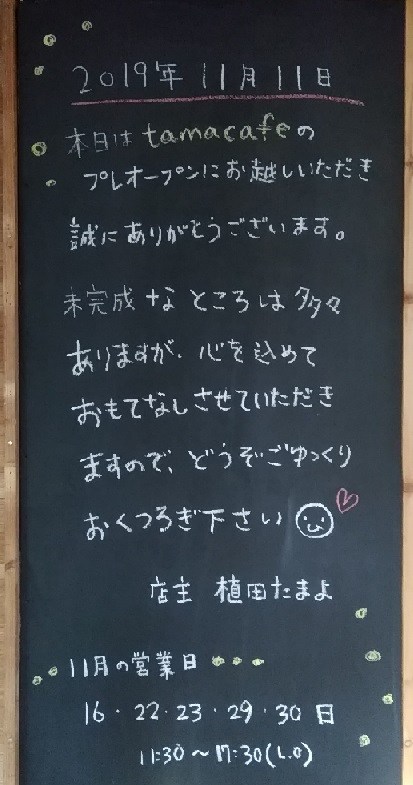 2019年11月11日
本日はtamacafeの
プレオープンにお越しいただき
誠にありがとうございます。
未完成なところは多々
ありますが、心を込めて
おもてなしさせていただき
ますので、どうぞごゆっくり
おくつろぎ下さい
店主 植田たまよ
11月の営業日・・・
16・22・23・29・30日
11:30〜17:30(L.O)